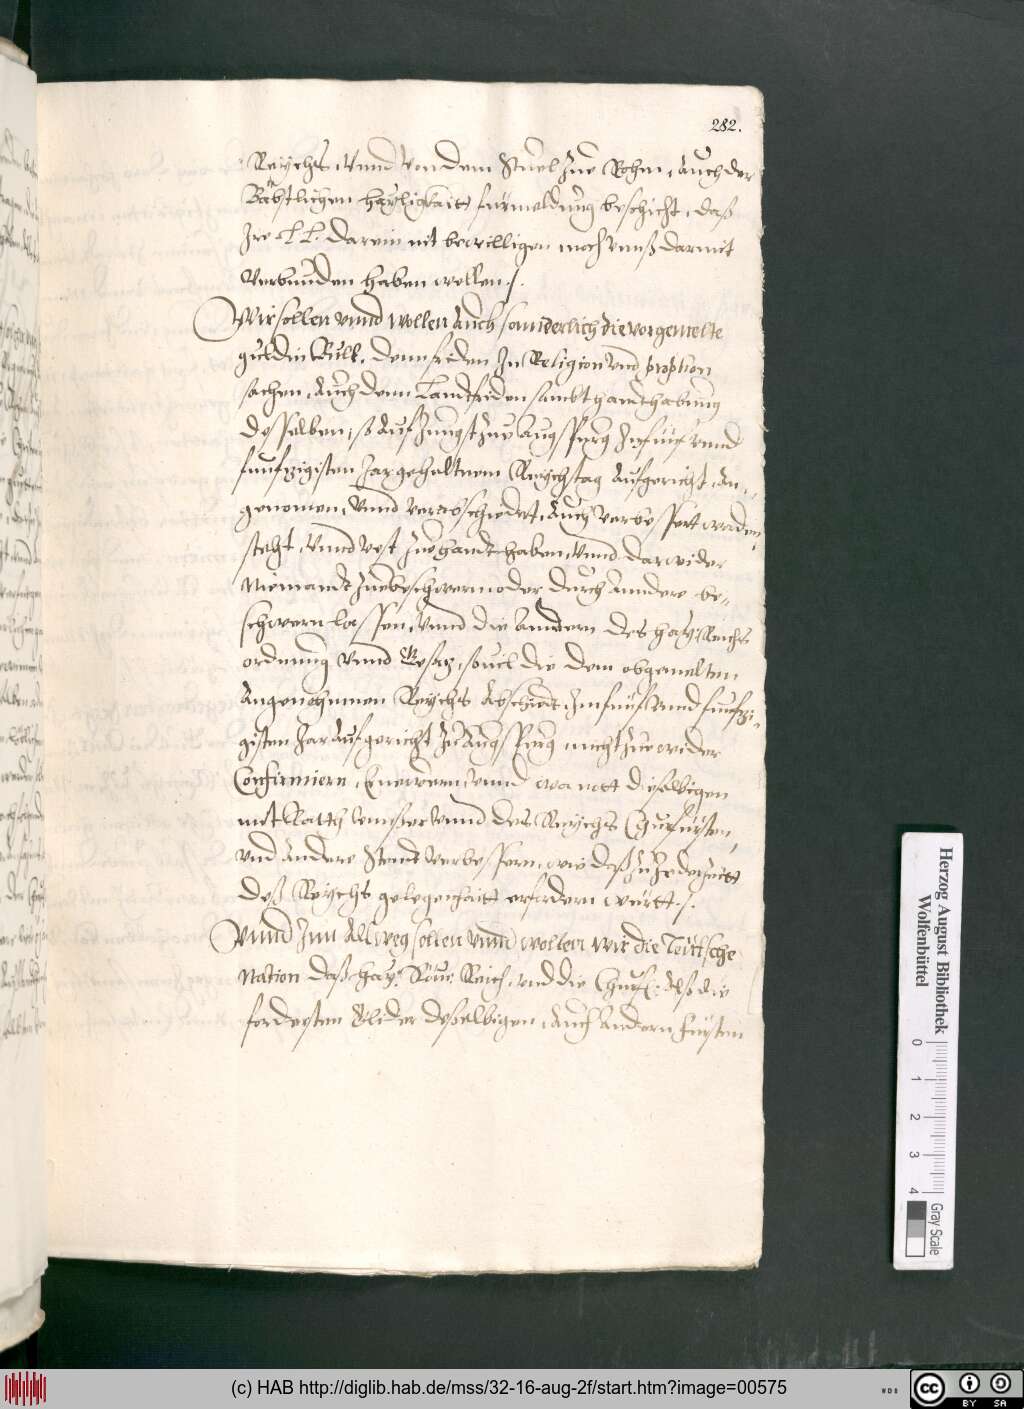 282.
Reychs, Vnnd Von dem Stuel Zue Rohm, Auch der
Bäbstlichen hayligkaitt fürmeldung beschicht, daß
Ire L L. darein nit bewilligen noch vnnß darmit
verbunden haben wollen./.
Wir sollen vnnd wollen Auch sonnderlich die vorgemelte
guldin Bull, denn friden In Religion vnd prophon
sachen, Auch denn Landtfriden sambt handthabung
desselben, so Auf Jungst Zue Augspurg Im fünf vnnd
funfzigisten Jar gehaltnem Reychstag Aufgericht, An-
genomen, Vnnd verabschiedet, Auch verbessert worden,
steht, Vnnd vest Zue handthaben, Vnnd darwider
Niemandt Zue beschwern oder durch Anndere be-
schwern lassen, Vnnd die Andern des hay: Reichs
ordnung Vnnd Gesaz, souil die dem obgemelten
Angenohmmen Reychs Abschiedt, Im fünf Vnnd funfzi-
gisten Jar Aufgericht Zu Augspurg nicht Zue wider
Confirmiern, Ernewern, Vnnd wa nott dieselbigen
mit Rath Vnnßer Vnnd des Reychs Churfürsten,
vnd Andere Stend Verbessern, wie deß Zu Jeder Zeitt
deß Reychs gelegenhaitt erfordern württ./.
Vnnd Inn Allweg sollen vnnd wollen wir die Teütsche
Nation daß hay: Röm: Reich, vnd die Churf: Alß die
fordersten Glider deßelbigen, Auch Andern Fürsten
Herzog August Bibliothek
Wolfenbüttel
0 1 2 3 4
Gray Scale
(c) HAB http://diglib.hab.de/mss/32-16-aug-2f/start.htm?image=00575
WDB
cc BY SA